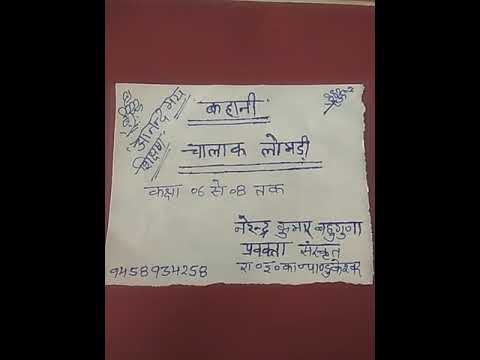 आनन्दमय
शिक्षण
कहानी
चालाक लोमड़ी
कक्षा ०6 से ०8 तक
नरेन्द्र कुमार बहुगुणा
प्रवक्ता संस्कृत
रा०इ०का०पाण्डुकेश्वर
9458934258